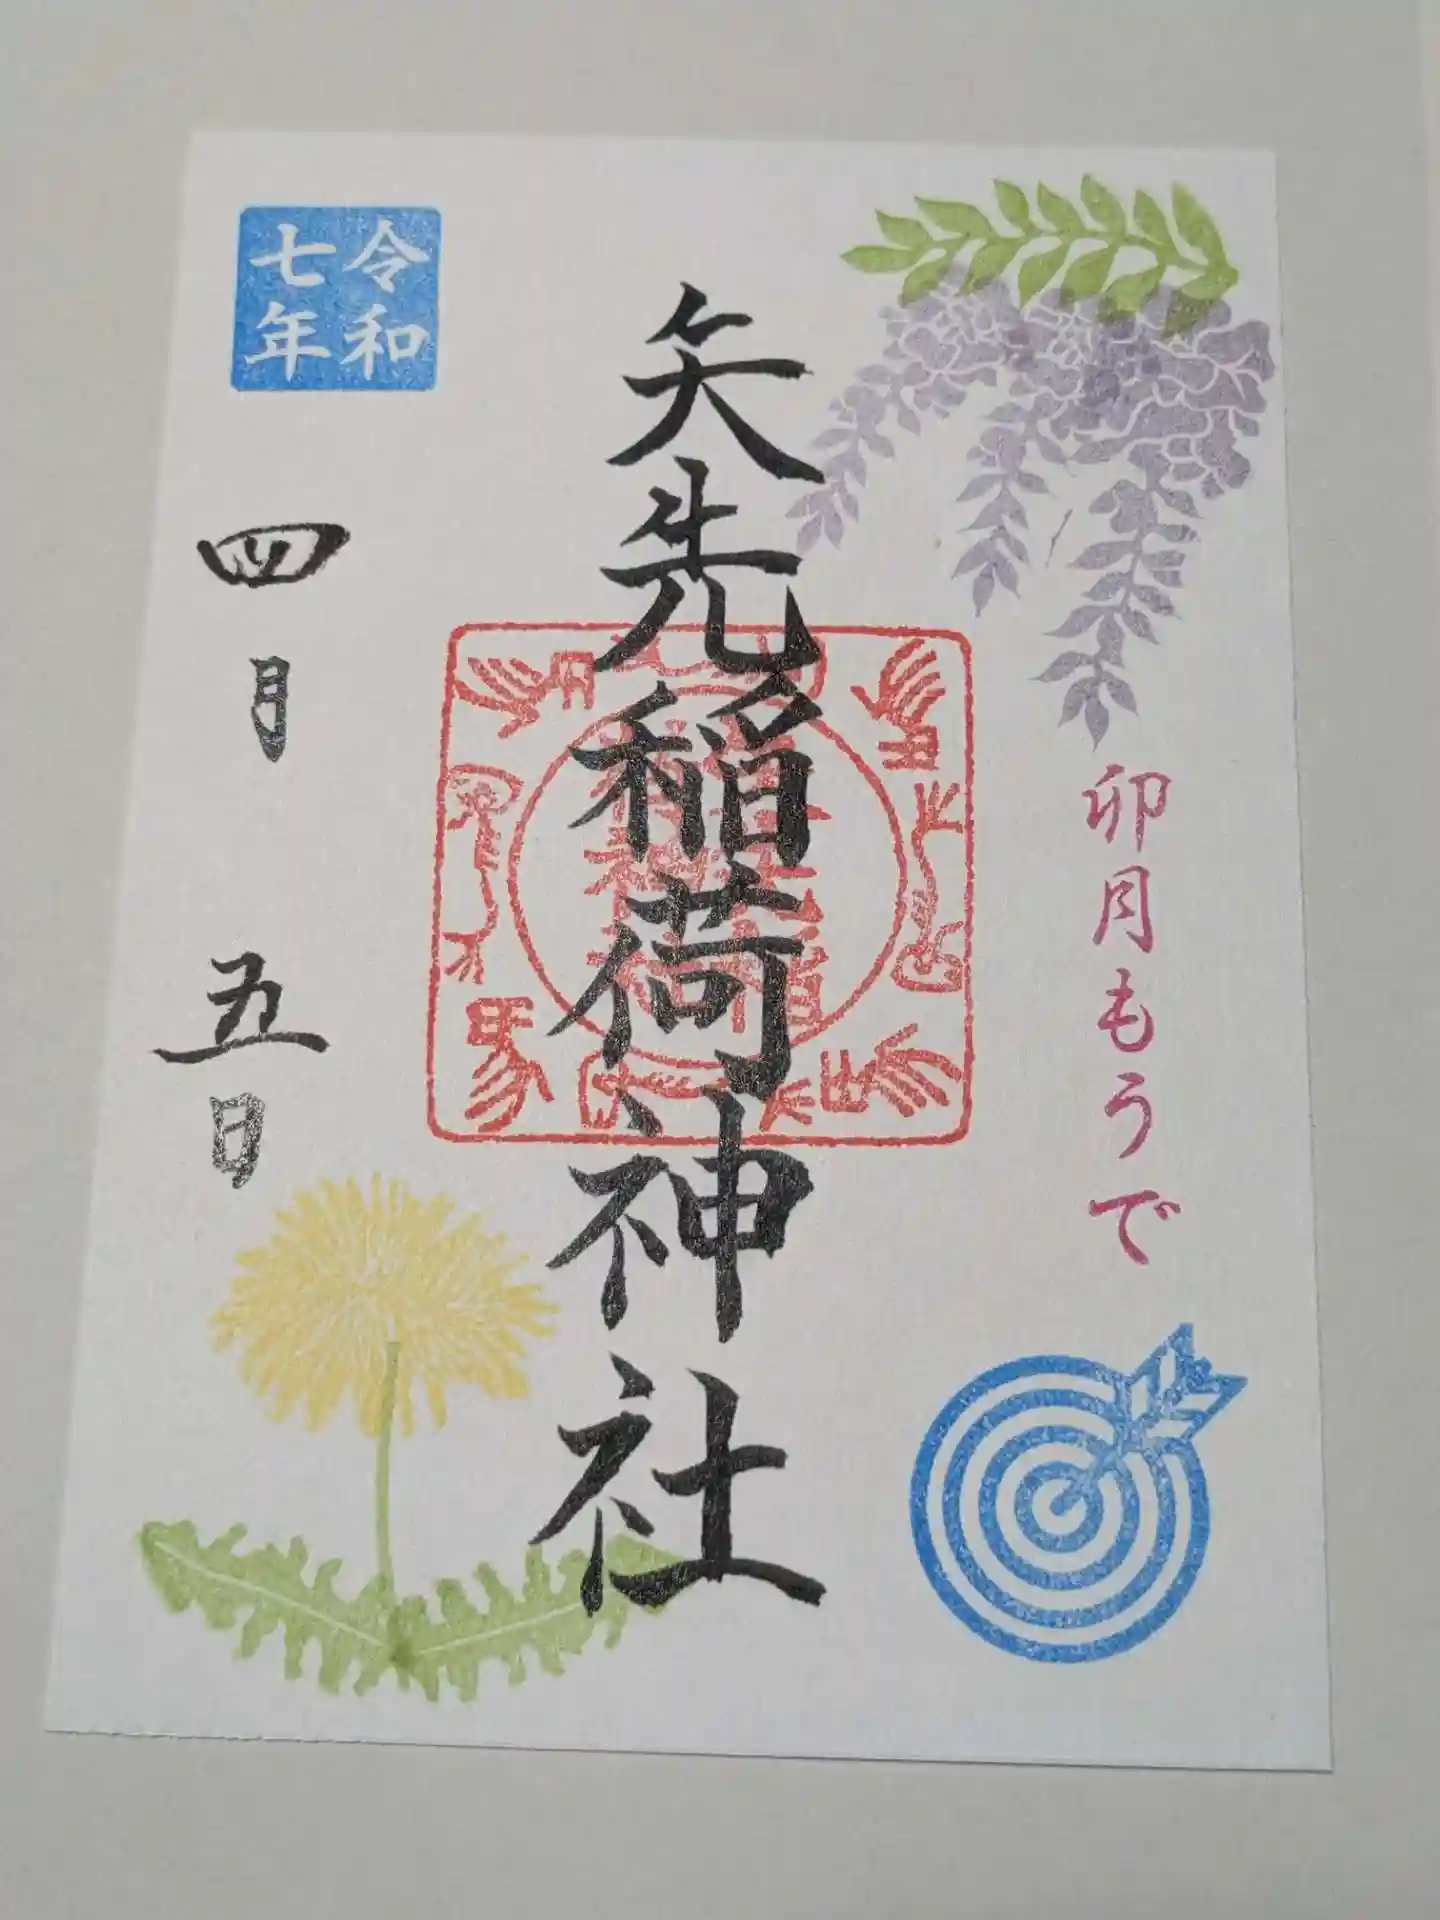 卯月もうで
矢先稲荷神社
令和
七年
四月五日